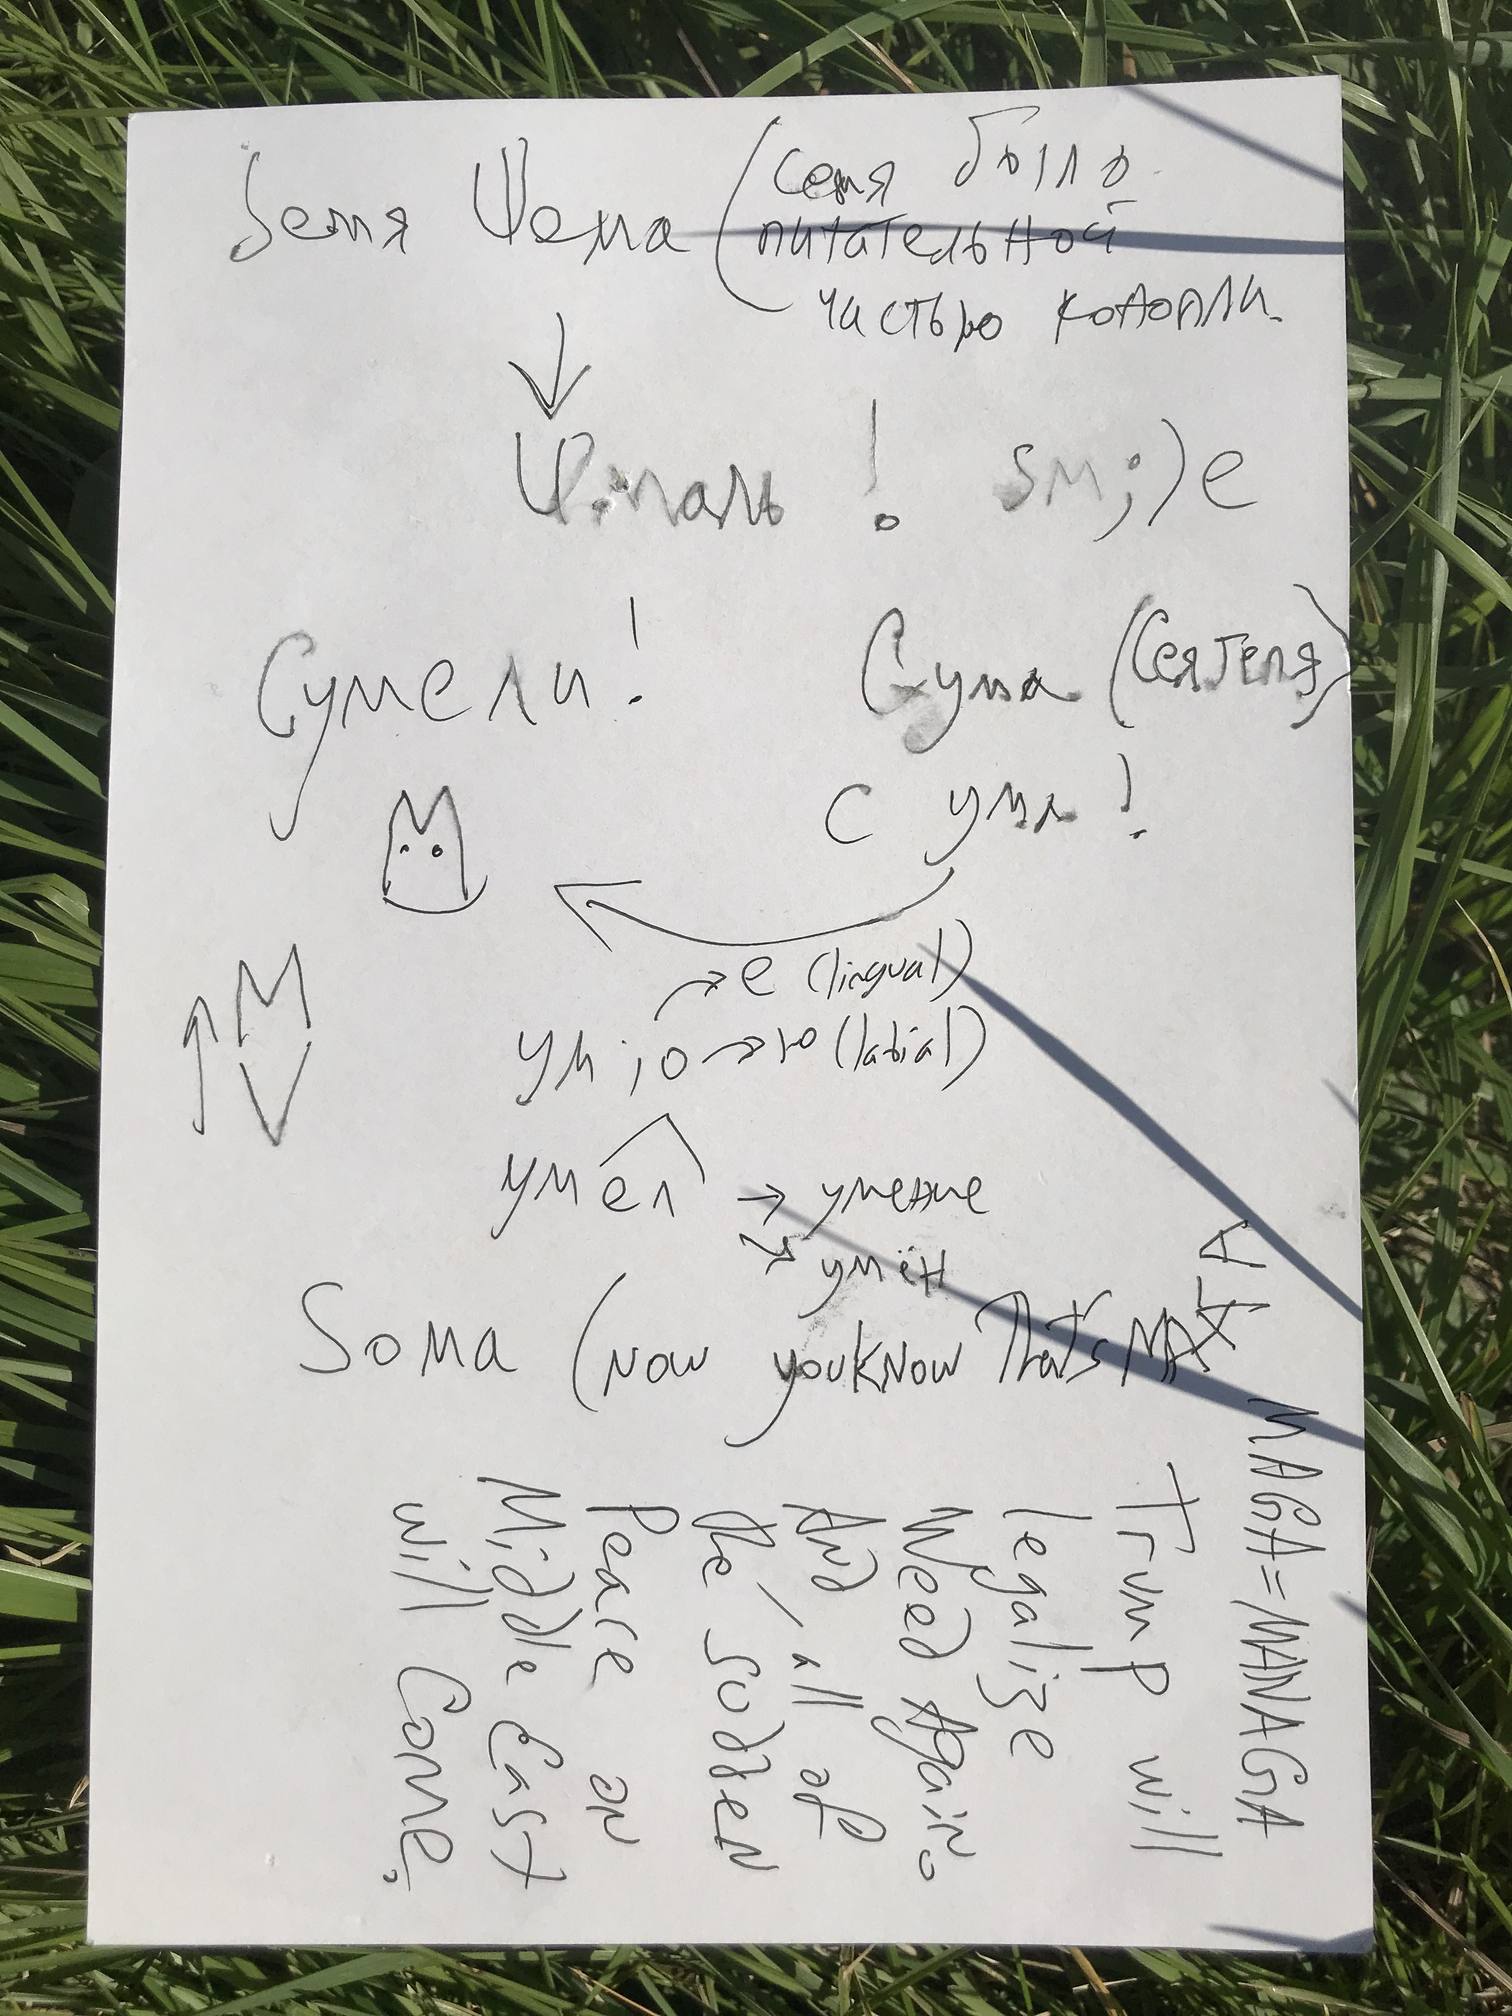 Семя Шема (семя было
питательной
частью конопли.
Шмаль! sm;)e
Сумели! Сума (Сеятеля)
с ума!
е (lingual)
ум;о → ю (labial)
M
V
умел → умение
умён
Soma (now you know That's MA
MAGA=MANAGA
Trump will
legalize
Weed Again.
And all of
the sudden
Peace on
Middle East
will Come.